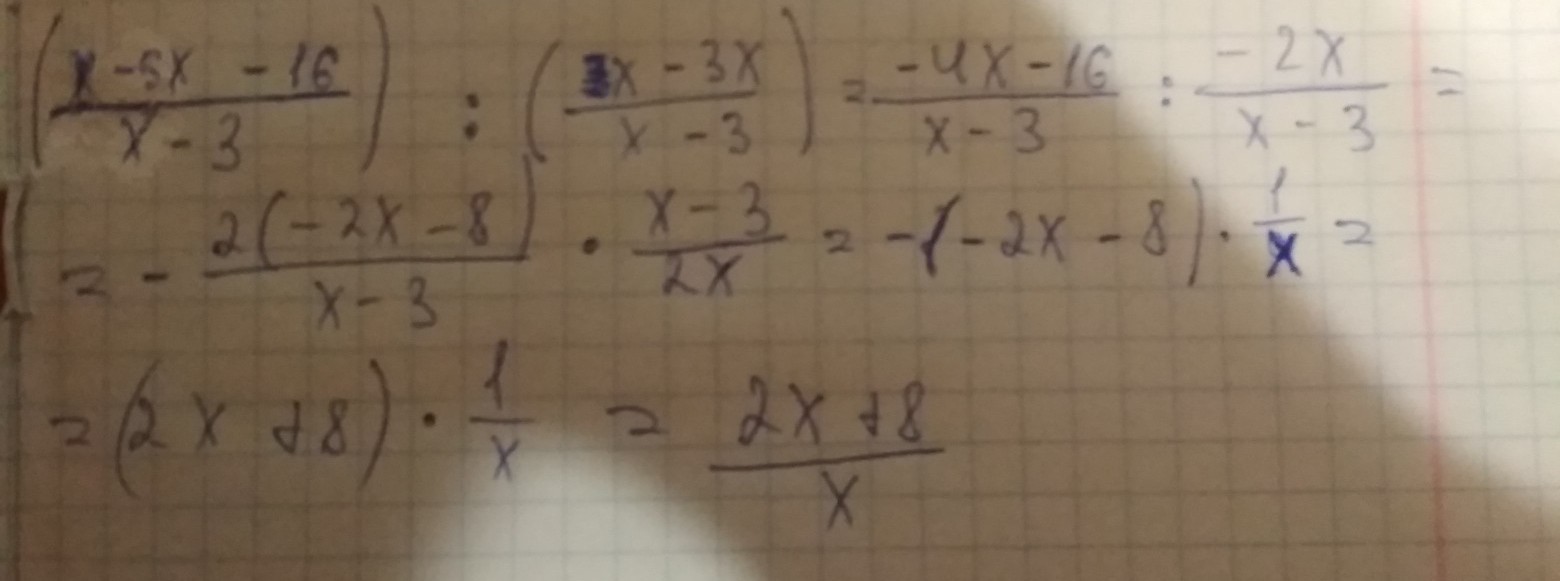 (x-5x-16)/(x-3) : (x-3x)/(x-3) = (-4x-16)/(x-3) : (-2x)/(x-3) =
= - 2(-2x-8)/(x-3) · (x-3)/(2x) = -(-2x-8) · 1/x =
= (2x+8) · 1/x = (2x+8)/x